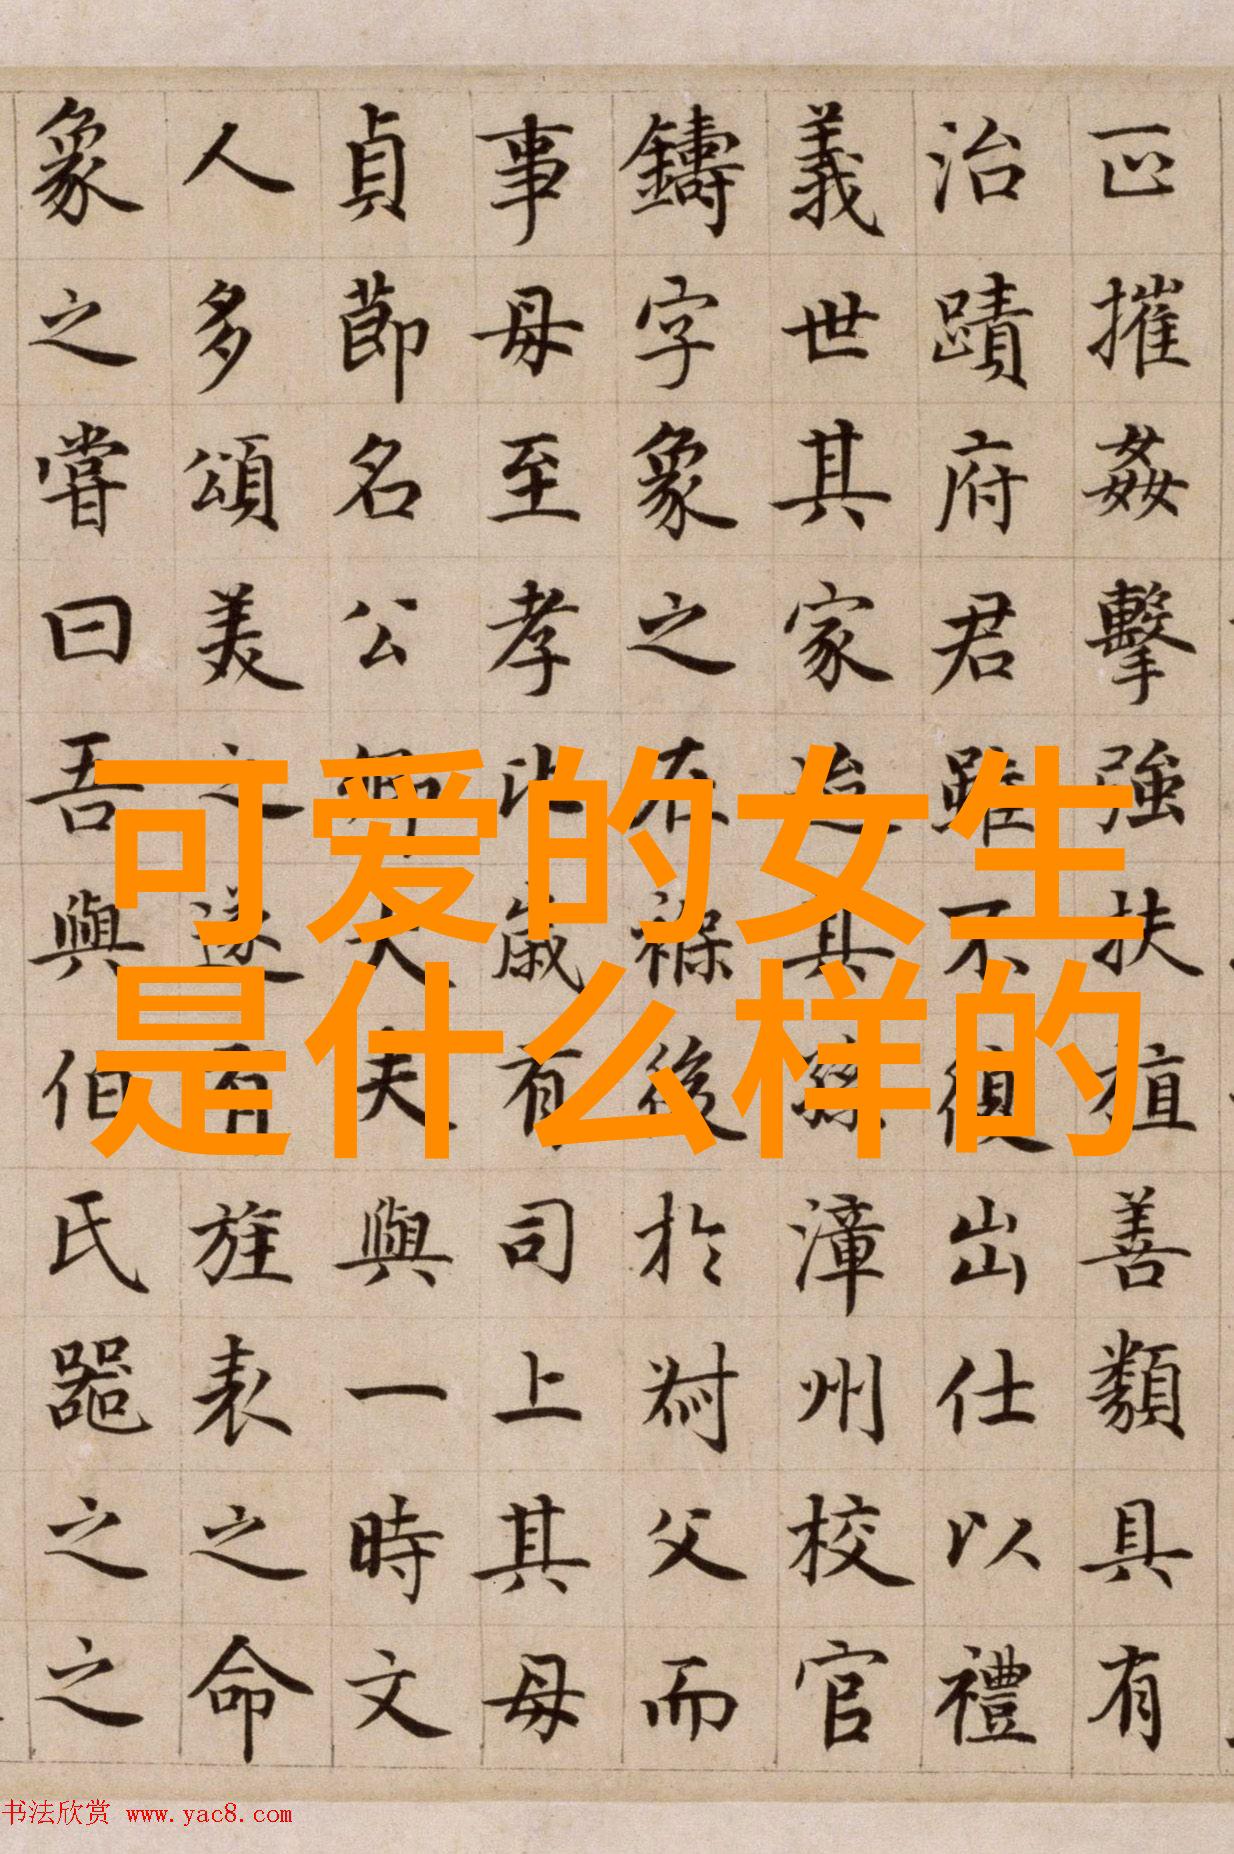 可爱的女生
是什么样的
摧姦擊強扶植善類具有
治蹟府君雖不復出仕以禮
義世其家迨其孫漳州校官
鑄字象之在褓後於父而
事母至孝比歲有司上其母
貞節名公卿大夫與一時文
人多頌美之遂有旌表之命
象之嘗曰吾與伯氏器之之
书法欣赏 www.yac8.com